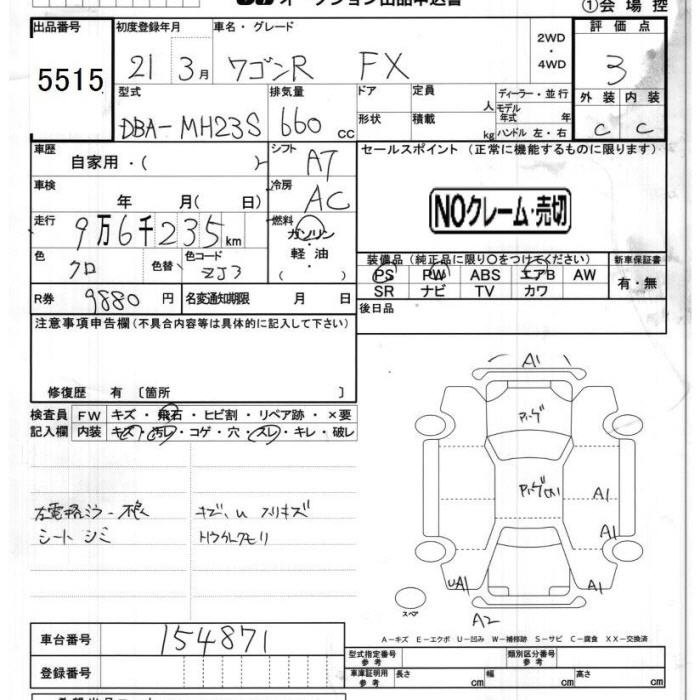 オークション出品申込書 ①会場控
出品番号 初度登録年月 車名・グレード 2WD・4WD 評価点
5515 21 3月 ワゴンR FX 3
型式 排気量 ドア 定員 人 ディーラー・並行 外装 内装
DBA-MH23S 660 cc 形状 積載 kg モデル年式 年 ハンドル 左・右 C C
車歴 自家用・( ) シフト AT セールスポイント (正常に機能するものに限ります)
車検 年 月( 日) 冷房 AC NOクレーム・売切
走行 9万6千235km 燃料 ガソリン・軽油
( )
色 クロ 色替 色コード ZJ3
装備品(純正品に限り○をつけてください) 新車保証書
PS PW ABS エアB AW 有・無
SR ナビ TV カワ
R券 9880円 名変通知期限 月 日 後日品
注意事項申告欄(不具合内容等は具体的に記入して下さい)
修復歴 有 〔箇所 〕
検査員 FW キズ・飛石・ヒビ割・リペア跡・×要
記入欄 内装 キズ・汚レ・コゲ・穴・スレ・キレ・破レ
シート シミ
A1
A1
A1
UA1 A1
スペア
A2
A-キズ E-エクボ U-凹み W-補修跡 S-サビ C-腐食 XX-交換済
車台番号 154871 型式指定番号 参考 類別区分番号 参考
登録番号 車庫証明用 参考 長さ cm 幅 cm 高さ cm